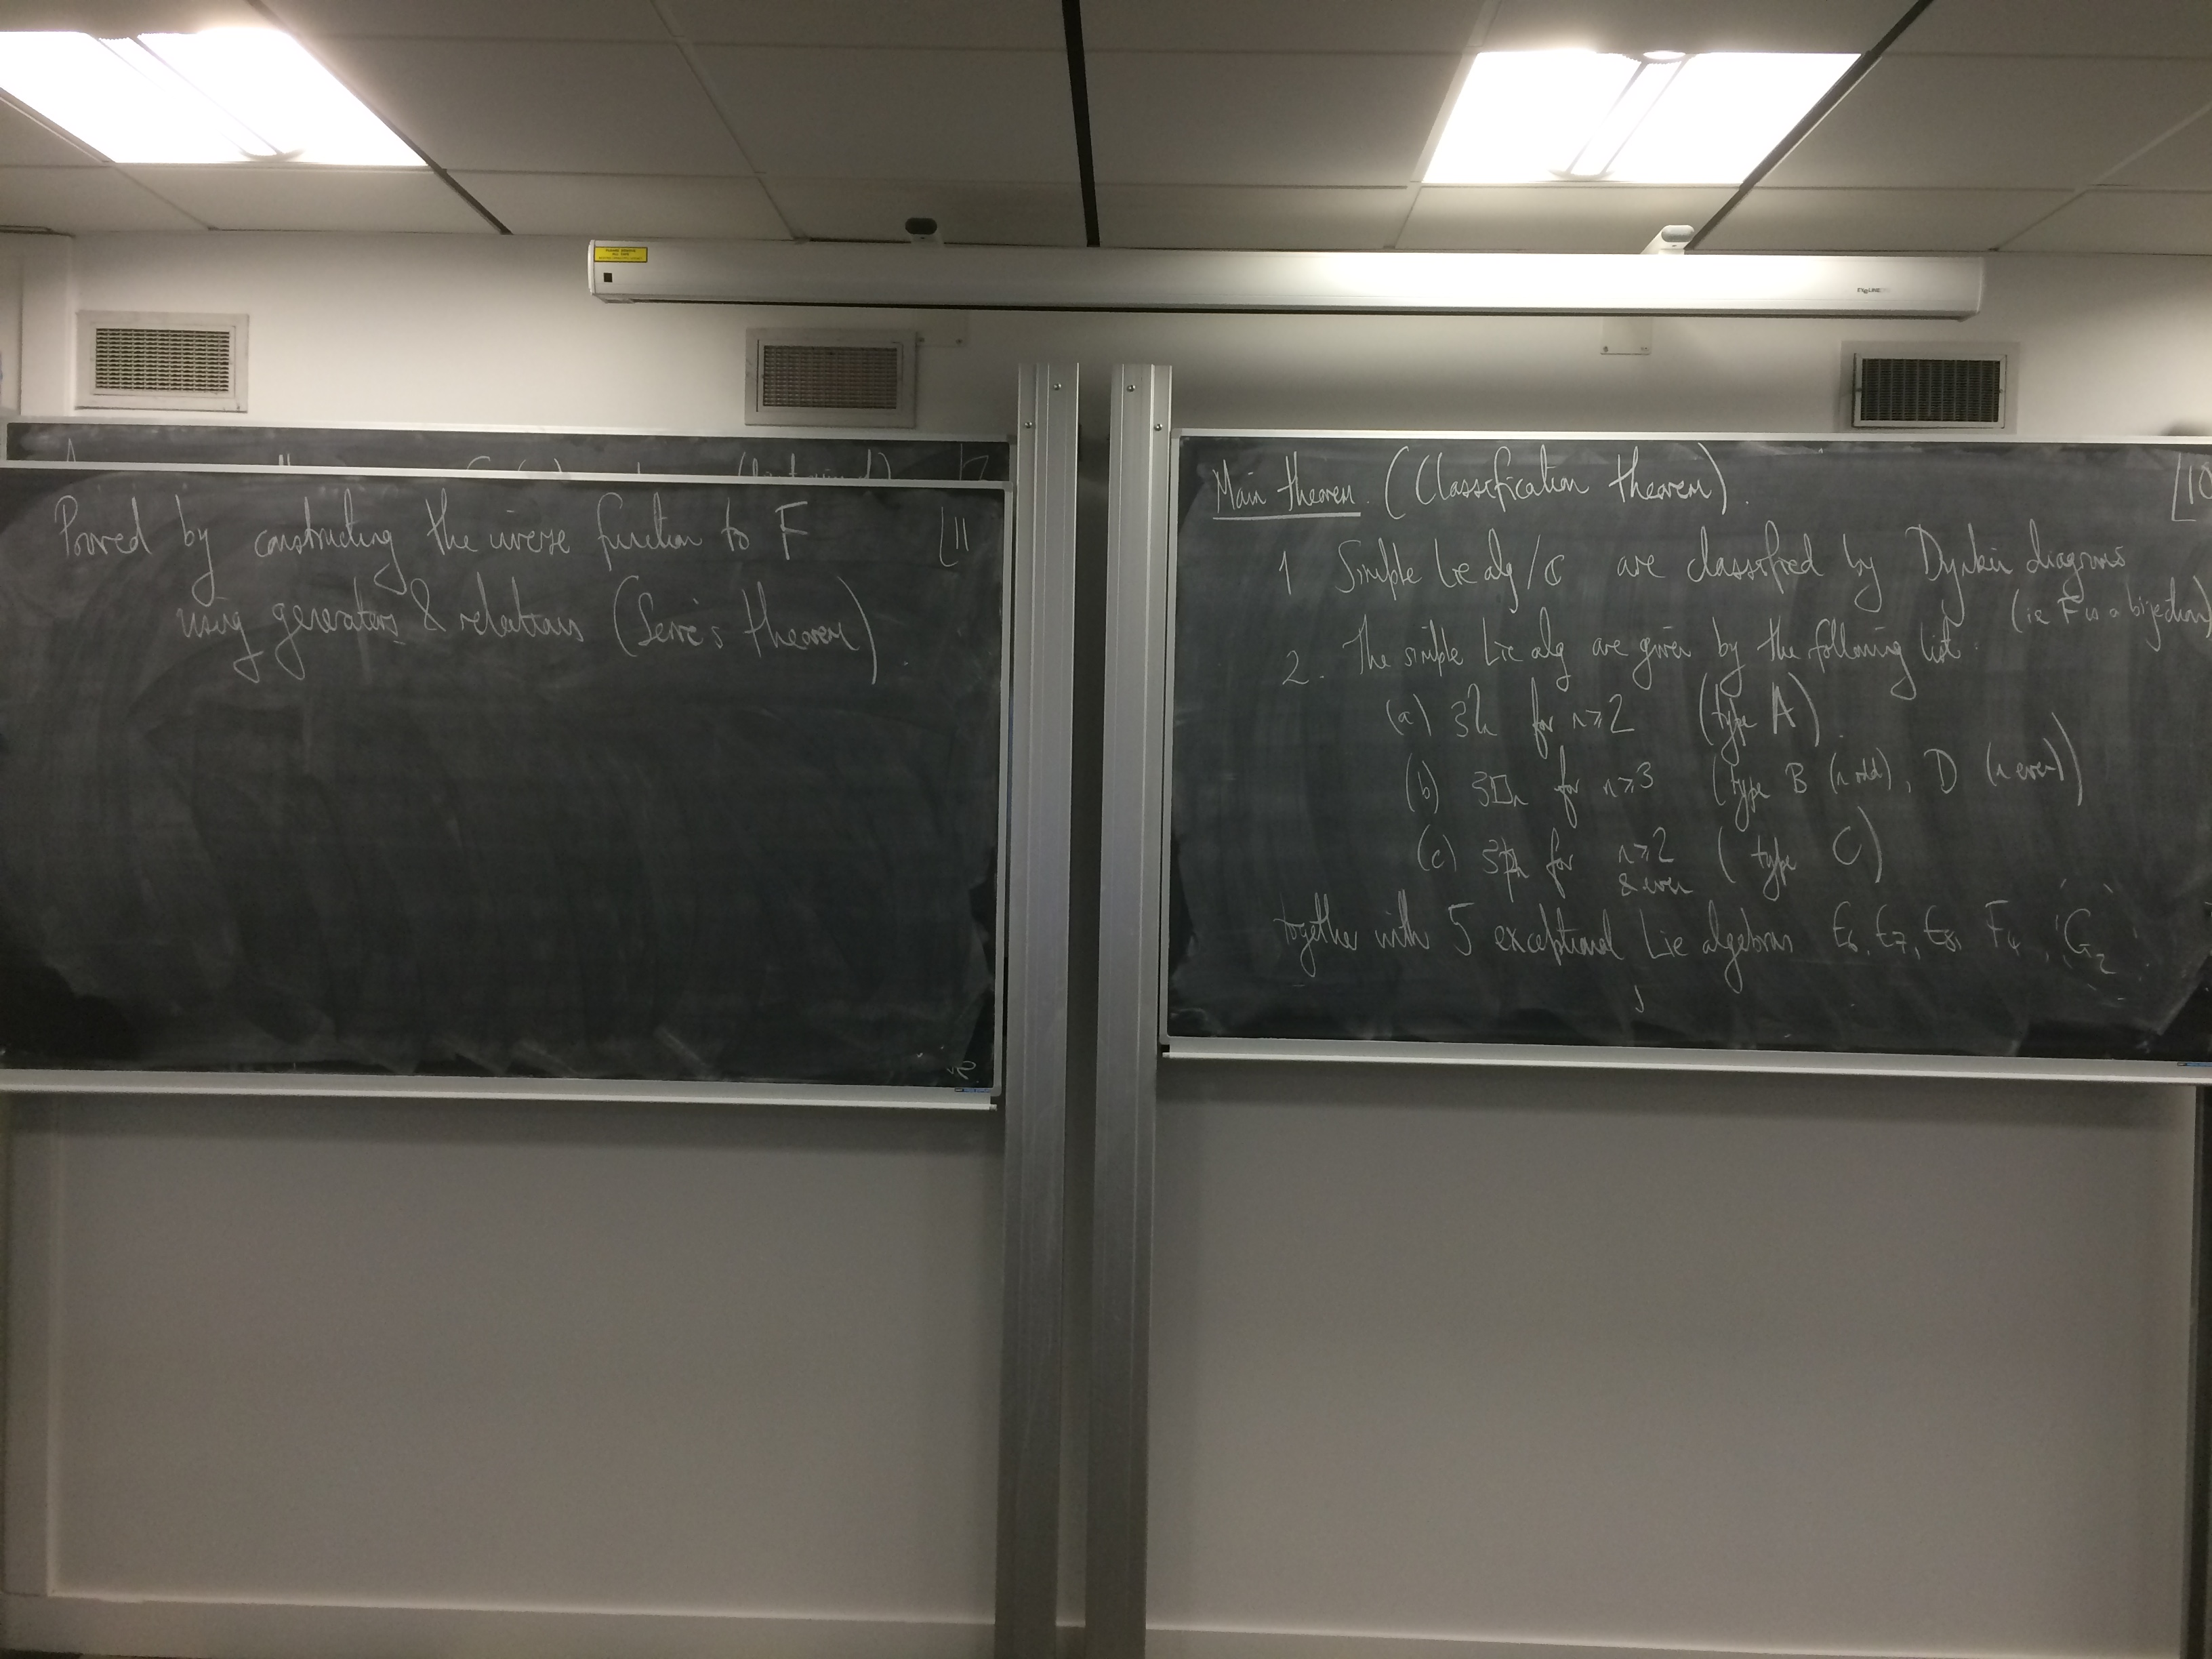 Proved by constructing the inverse function to F
11
using generators & relations (Serre's theorem).
Main theorem. (Classification theorem).
10
1 Simple Lie alg/ℂ are classified by Dynkin diagrams
(ie F is a bijection)
2. The simple Lie alg are given by the following list:
(a) 𝔰𝔩n for n≥2 (type A)
(b) 𝔰𝔬n for n≥3 (type B (n odd), D (n even))
(c) 𝔰𝔭n for n≥2 (type C)
& even
together with 5 exceptional Lie algebras E6, E7, E8, F4, G2